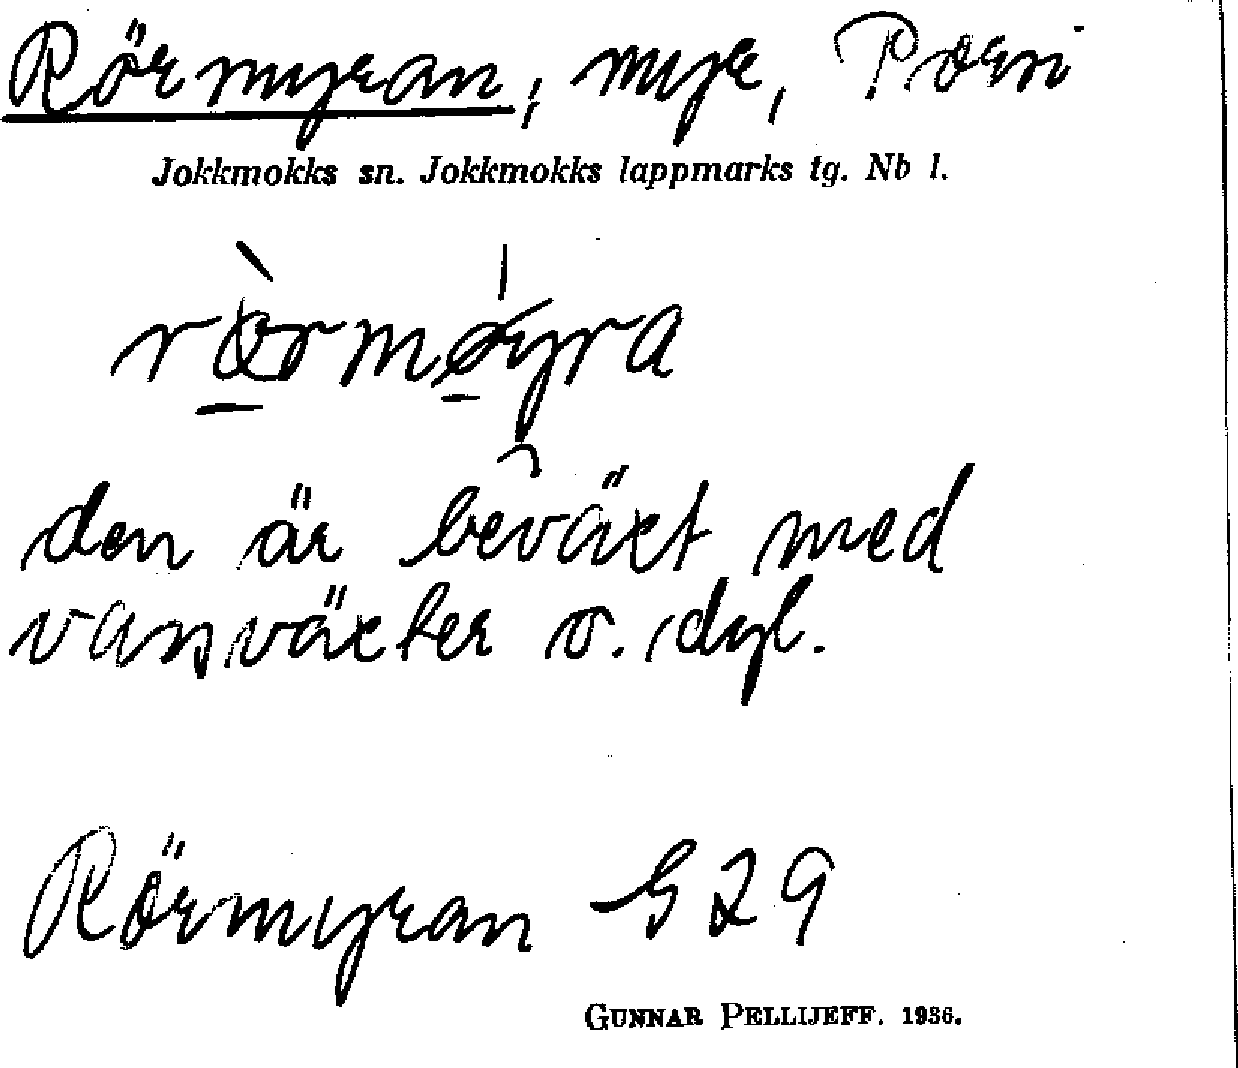 Rörmyran, myr, Porsi
Jokkmokks sn. Jokkmokks lappmarks tg. Nb l.
den är beväxt med
vassväxter o. dyl.
Rörmyran G 29
GUNNAR PELLIJEFF. 1936.